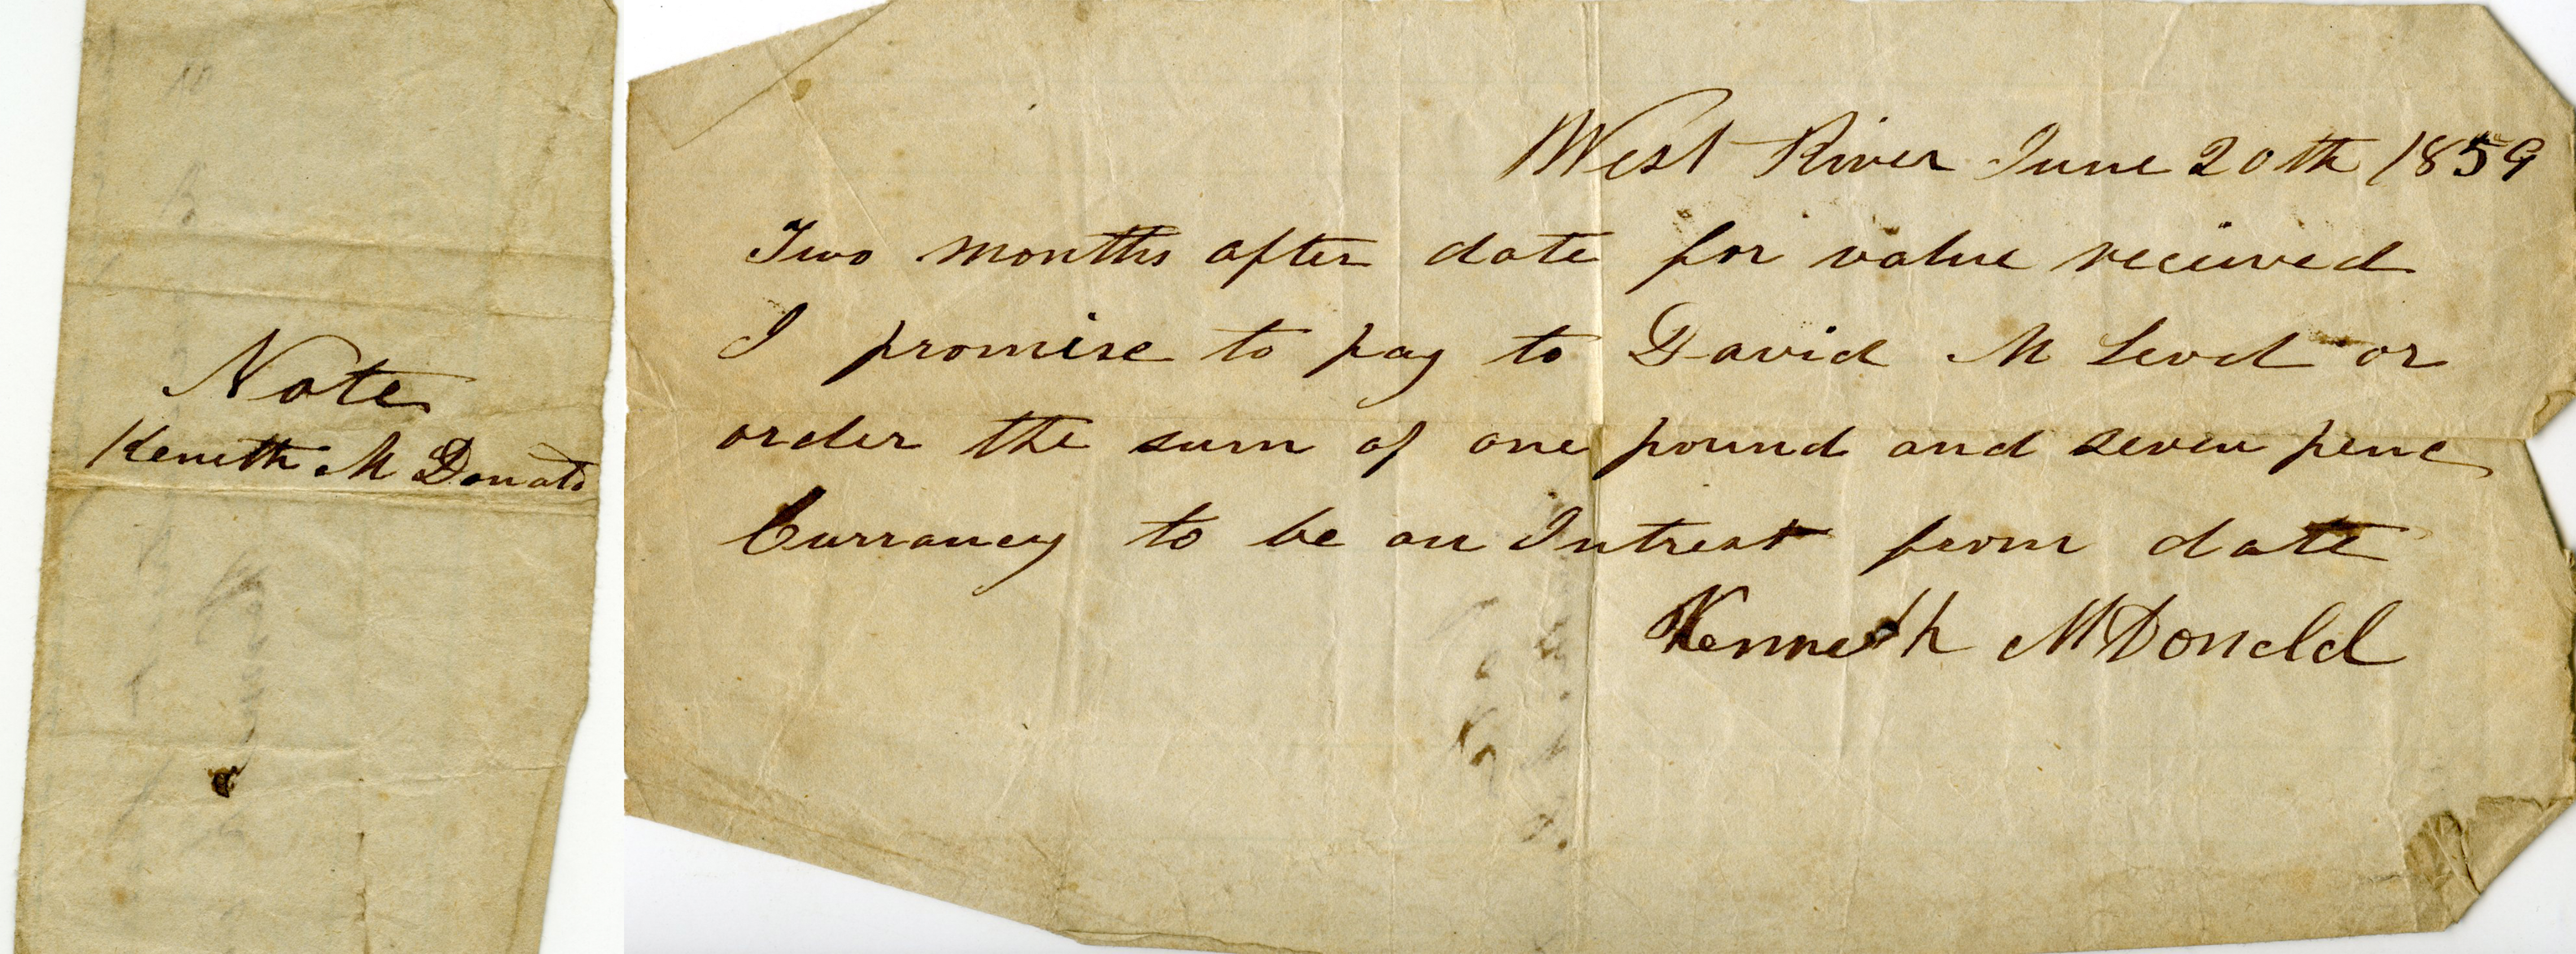 Note
Keneth M Donald
West River June 20th 1859
Two months after date for value recieved
I promise to pay to David M Leod or
order the sum of one pound and seven penc
Currancy to be on Intrest from date
Kenneth McDonald